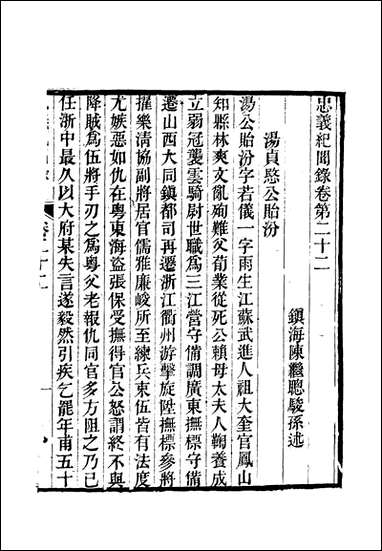 忠義紀聞錄卷第二十二
鎮海陳繼聰駿孫述
湯貞愍公貽汾
湯公貽汾字若儀一字雨生江蘇武進人祖大奎官鳳山
知縣林爽文亂殉難父荀業從死公賴母太夫人鞠養成
立弱冠襲雲騎尉世職爲三江營守備調廣東撫標守備
遷山西大同鎮都司再遷浙江衢州游擊旋陞撫標參將
擢樂清協副將居官儒雅廉峻所至練兵束伍皆有法度
尤嫉惡如仇在粵東海盜張保受撫得官公怒謂終不與
降賊爲伍將手刃之爲粵父老報仇同官多方阻之乃已
任浙中最久以大府某失言遂毅然引疾乞罷年甫五十